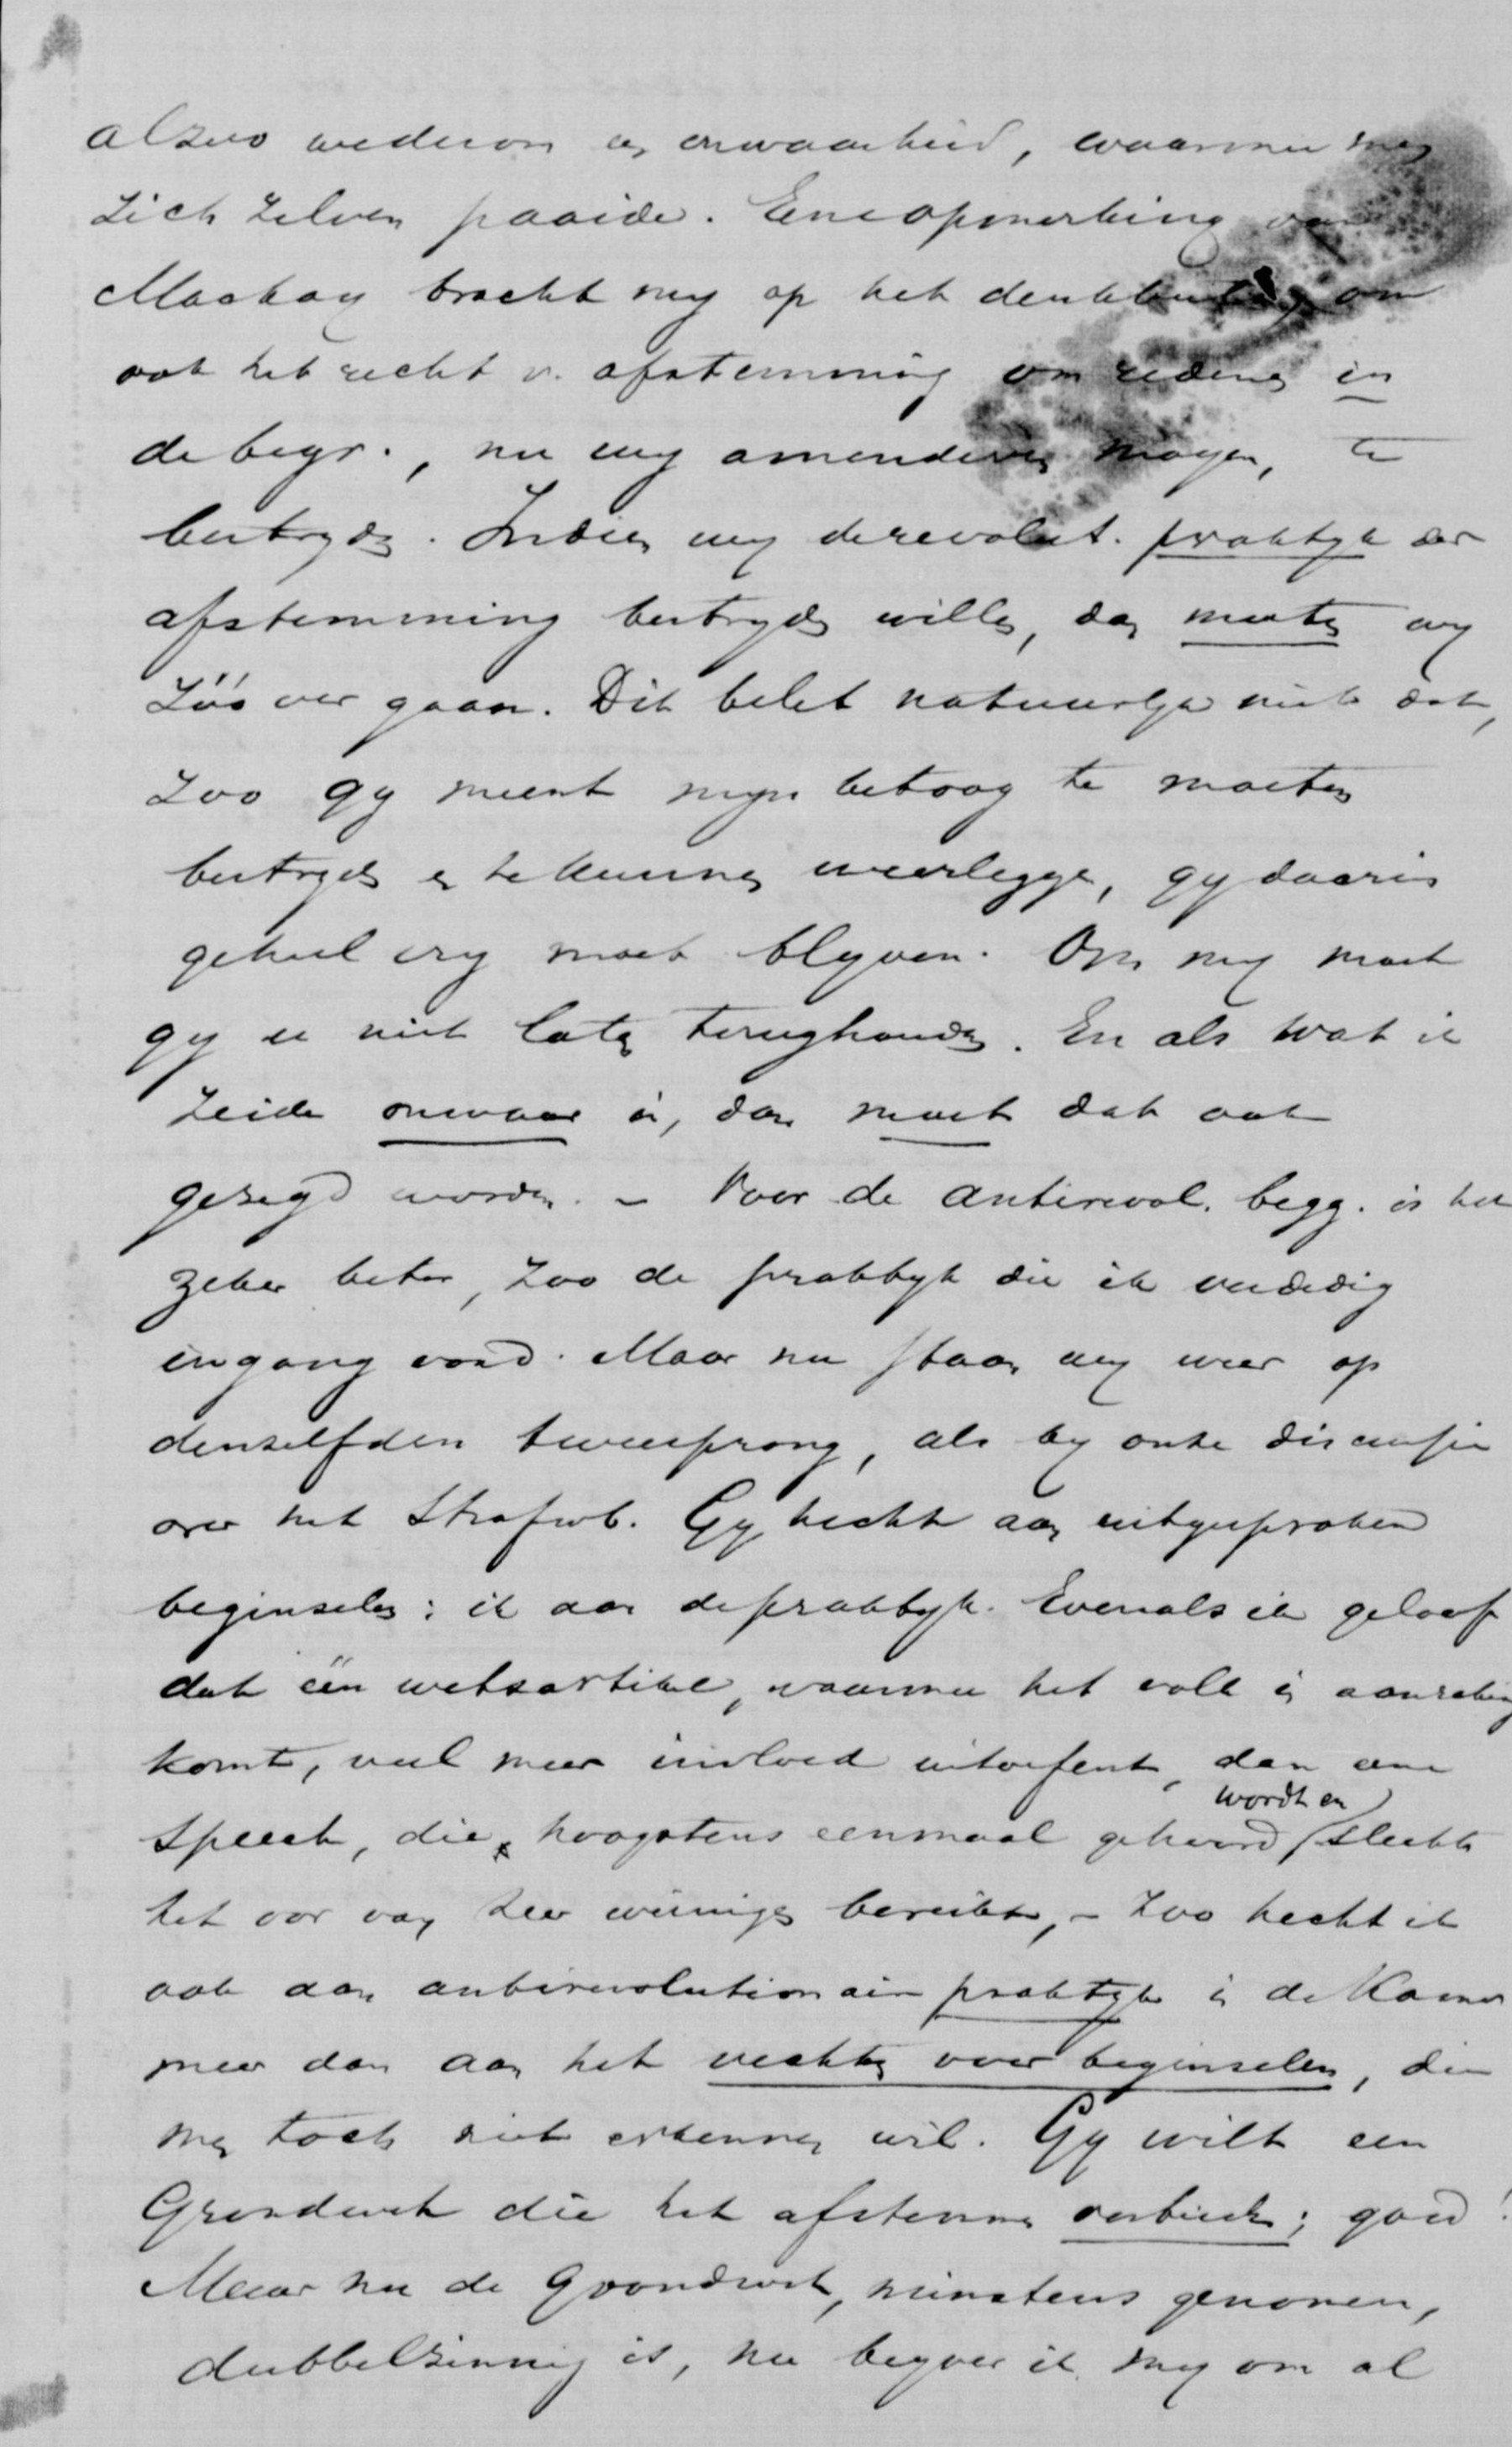 alzoo wederom en onwaarheid, waarmee men
zich zelven paaide. Eene opmerking van
Mackay bracht my op het denkbeeld, om
ook het recht v. afstemming om redenen in
de begr., nu wy amenderen mogen, te
bestryden. Indien wy de revolut. praktyk der
afstemming bestryden willen, dan moeten wy
zóó ver gaan. Dit belet natuurlyk niet dat,
zoo gy meent myn betoog te moeten
bestryden en te kunnen weerleggen, gy daarin
geheel vry moet blyven. Om my moet
gy u niet laten terughouden. En als wat ik
zeide onwaar is, dan moet dat ook
gezegd worden. – Voor de antirevol. begg. is het
zeker beter, zoo de praktyk die ik verdedig
ingang vond. Maar nu staan wy weer op
denzelfden tweesprong, als by onze discussie
over het Strafwb. Gy hecht aan uitgesproken
beginselen; ik aan de praktyk. Evenals ik geloof
dat één wetsartikel, waarmee het volk in aanraking
komt, veel meer invloed uitoefent, dan eene
speech, die hoogstens eenmaal gehoord wordt en slechts
het oor van zeer weinigen bereikt, – zoo hecht ik
ook aan antirevolutionaire praktyk in de Kamer
meer dan aan het vechten over beginselen, die
men toch niet erkennen wil. Gy wilt een
Grondwet die het afstemmen verbiedt; goed!
Maar nu de Grondwet, minstens genomen,
dubbelzinnig is, nu beyver ik my om al